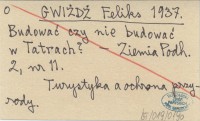 o GWIŻDŻ Feliks 1937.
Budować czy nie budować
w Tatrach? – Ziemia Podh.
2, nr 11.
Turystyka a ochrona przy-
rody.